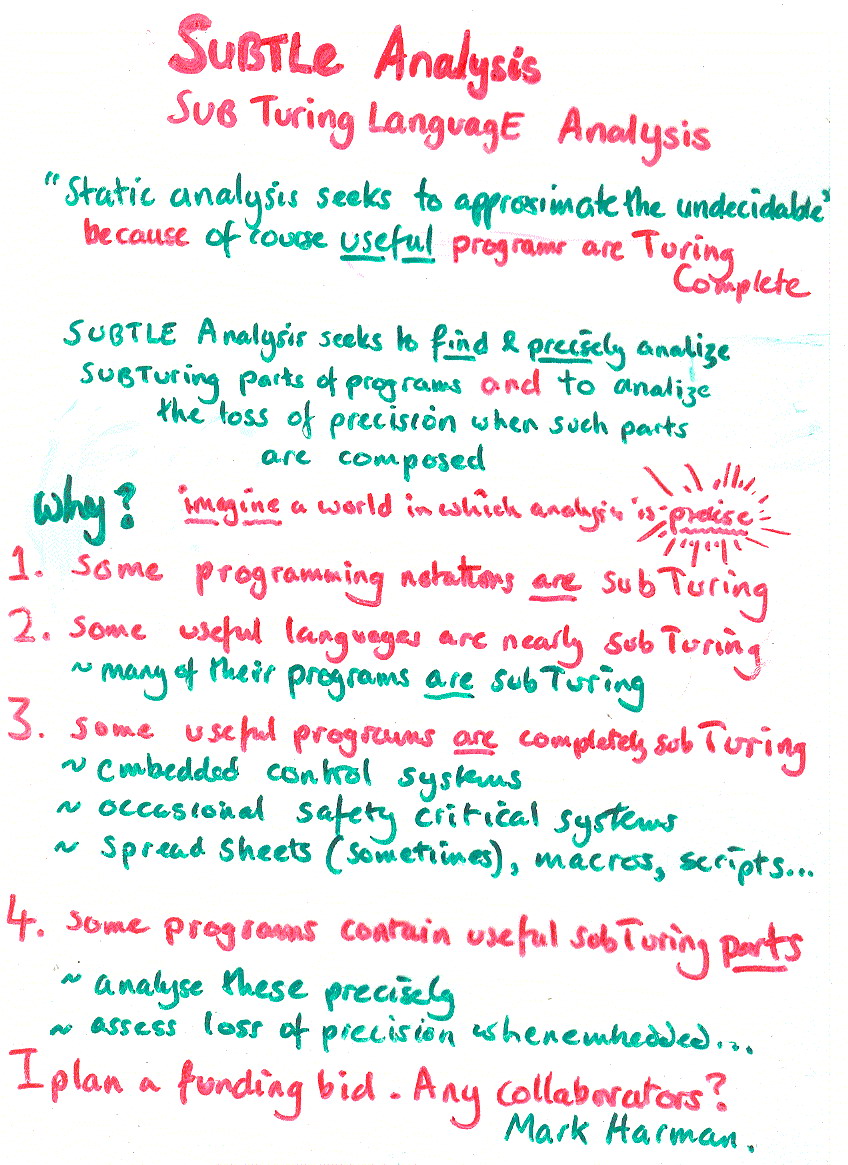 SUBTLe Analysis
SUB Turing LanguagE Analysis
"Static analysis seeks to approximate the undecidable"
because of couse useful programs are Turing
Complete
SUBTLE Analysis seeks to find & precisely analize
SUBTuring parts of programs and to analize
the loss of precision when such parts
are composed
Why? imagine a world in which analysis is precise
1. Some programming notations are sub Turing
2. some useful languages are nearly sub Turing
~ many of their programs are sub Turing
3. some useful programs are completely sub Turing
~ embedded control systems
~ occasional safety critical systems
~ Spread Sheets (sometimes), macros, scripts...
4. some programs contain useful sub Turing parts
~ analyse these precisely
~ assess loss of precision when embedded...
I plan a funding bid. Any collaborators?
Mark Harman.